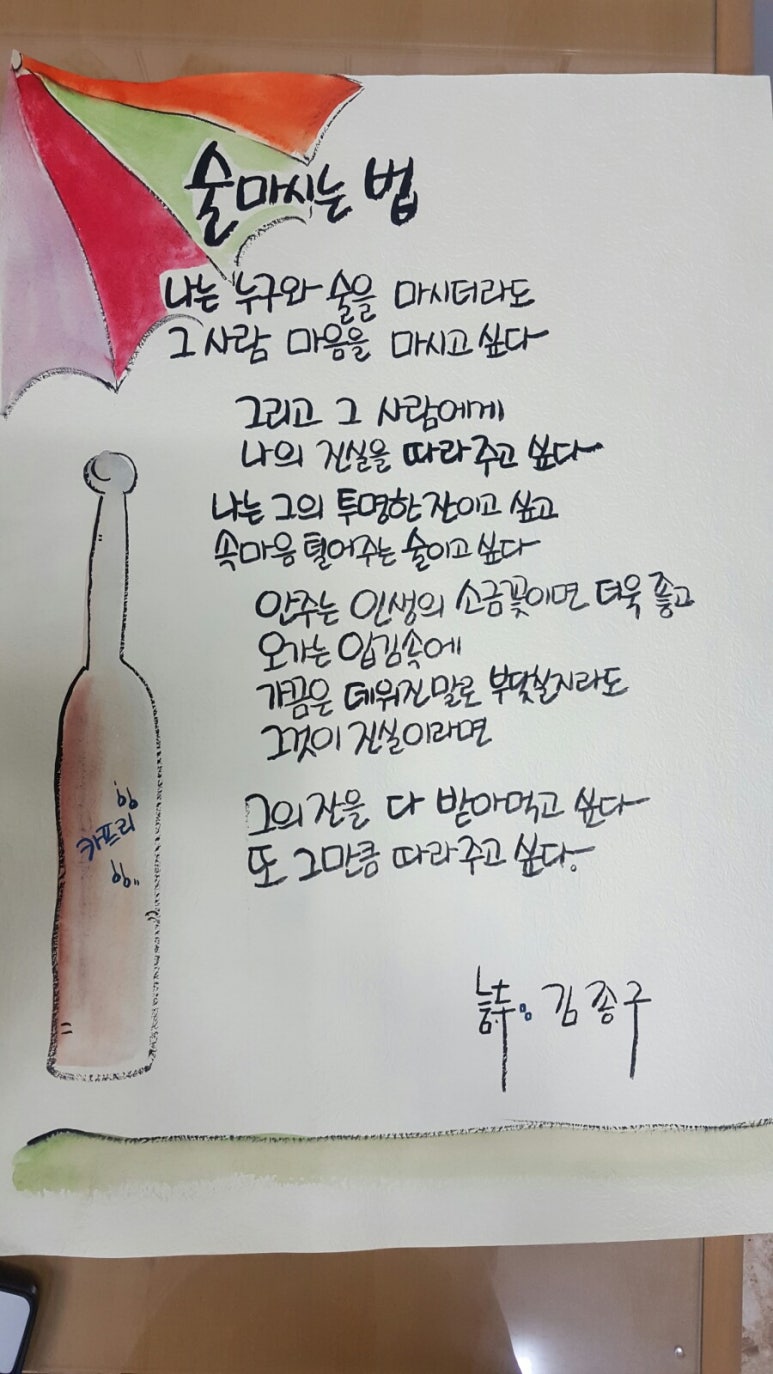 술 마시는 법
나는 누구와 술을 마시더라도
그 사람 마음을 마시고 싶다
그리고 그 사람에게
나의 진실을 따라주고 싶다
나는 그의 투명한 잔이고 싶고
속마음 털어주는 술이고 싶다
안주는 인생의 소금꽃이면 더욱 좋고
오가는 입김속에
가끔은 데워진 말로 부딪칠지라도
그것이 진실이라면
그의 잔을 다 받아먹고 싶다
또 그만큼 따라주고 싶다.
카프리
詩. 김종구